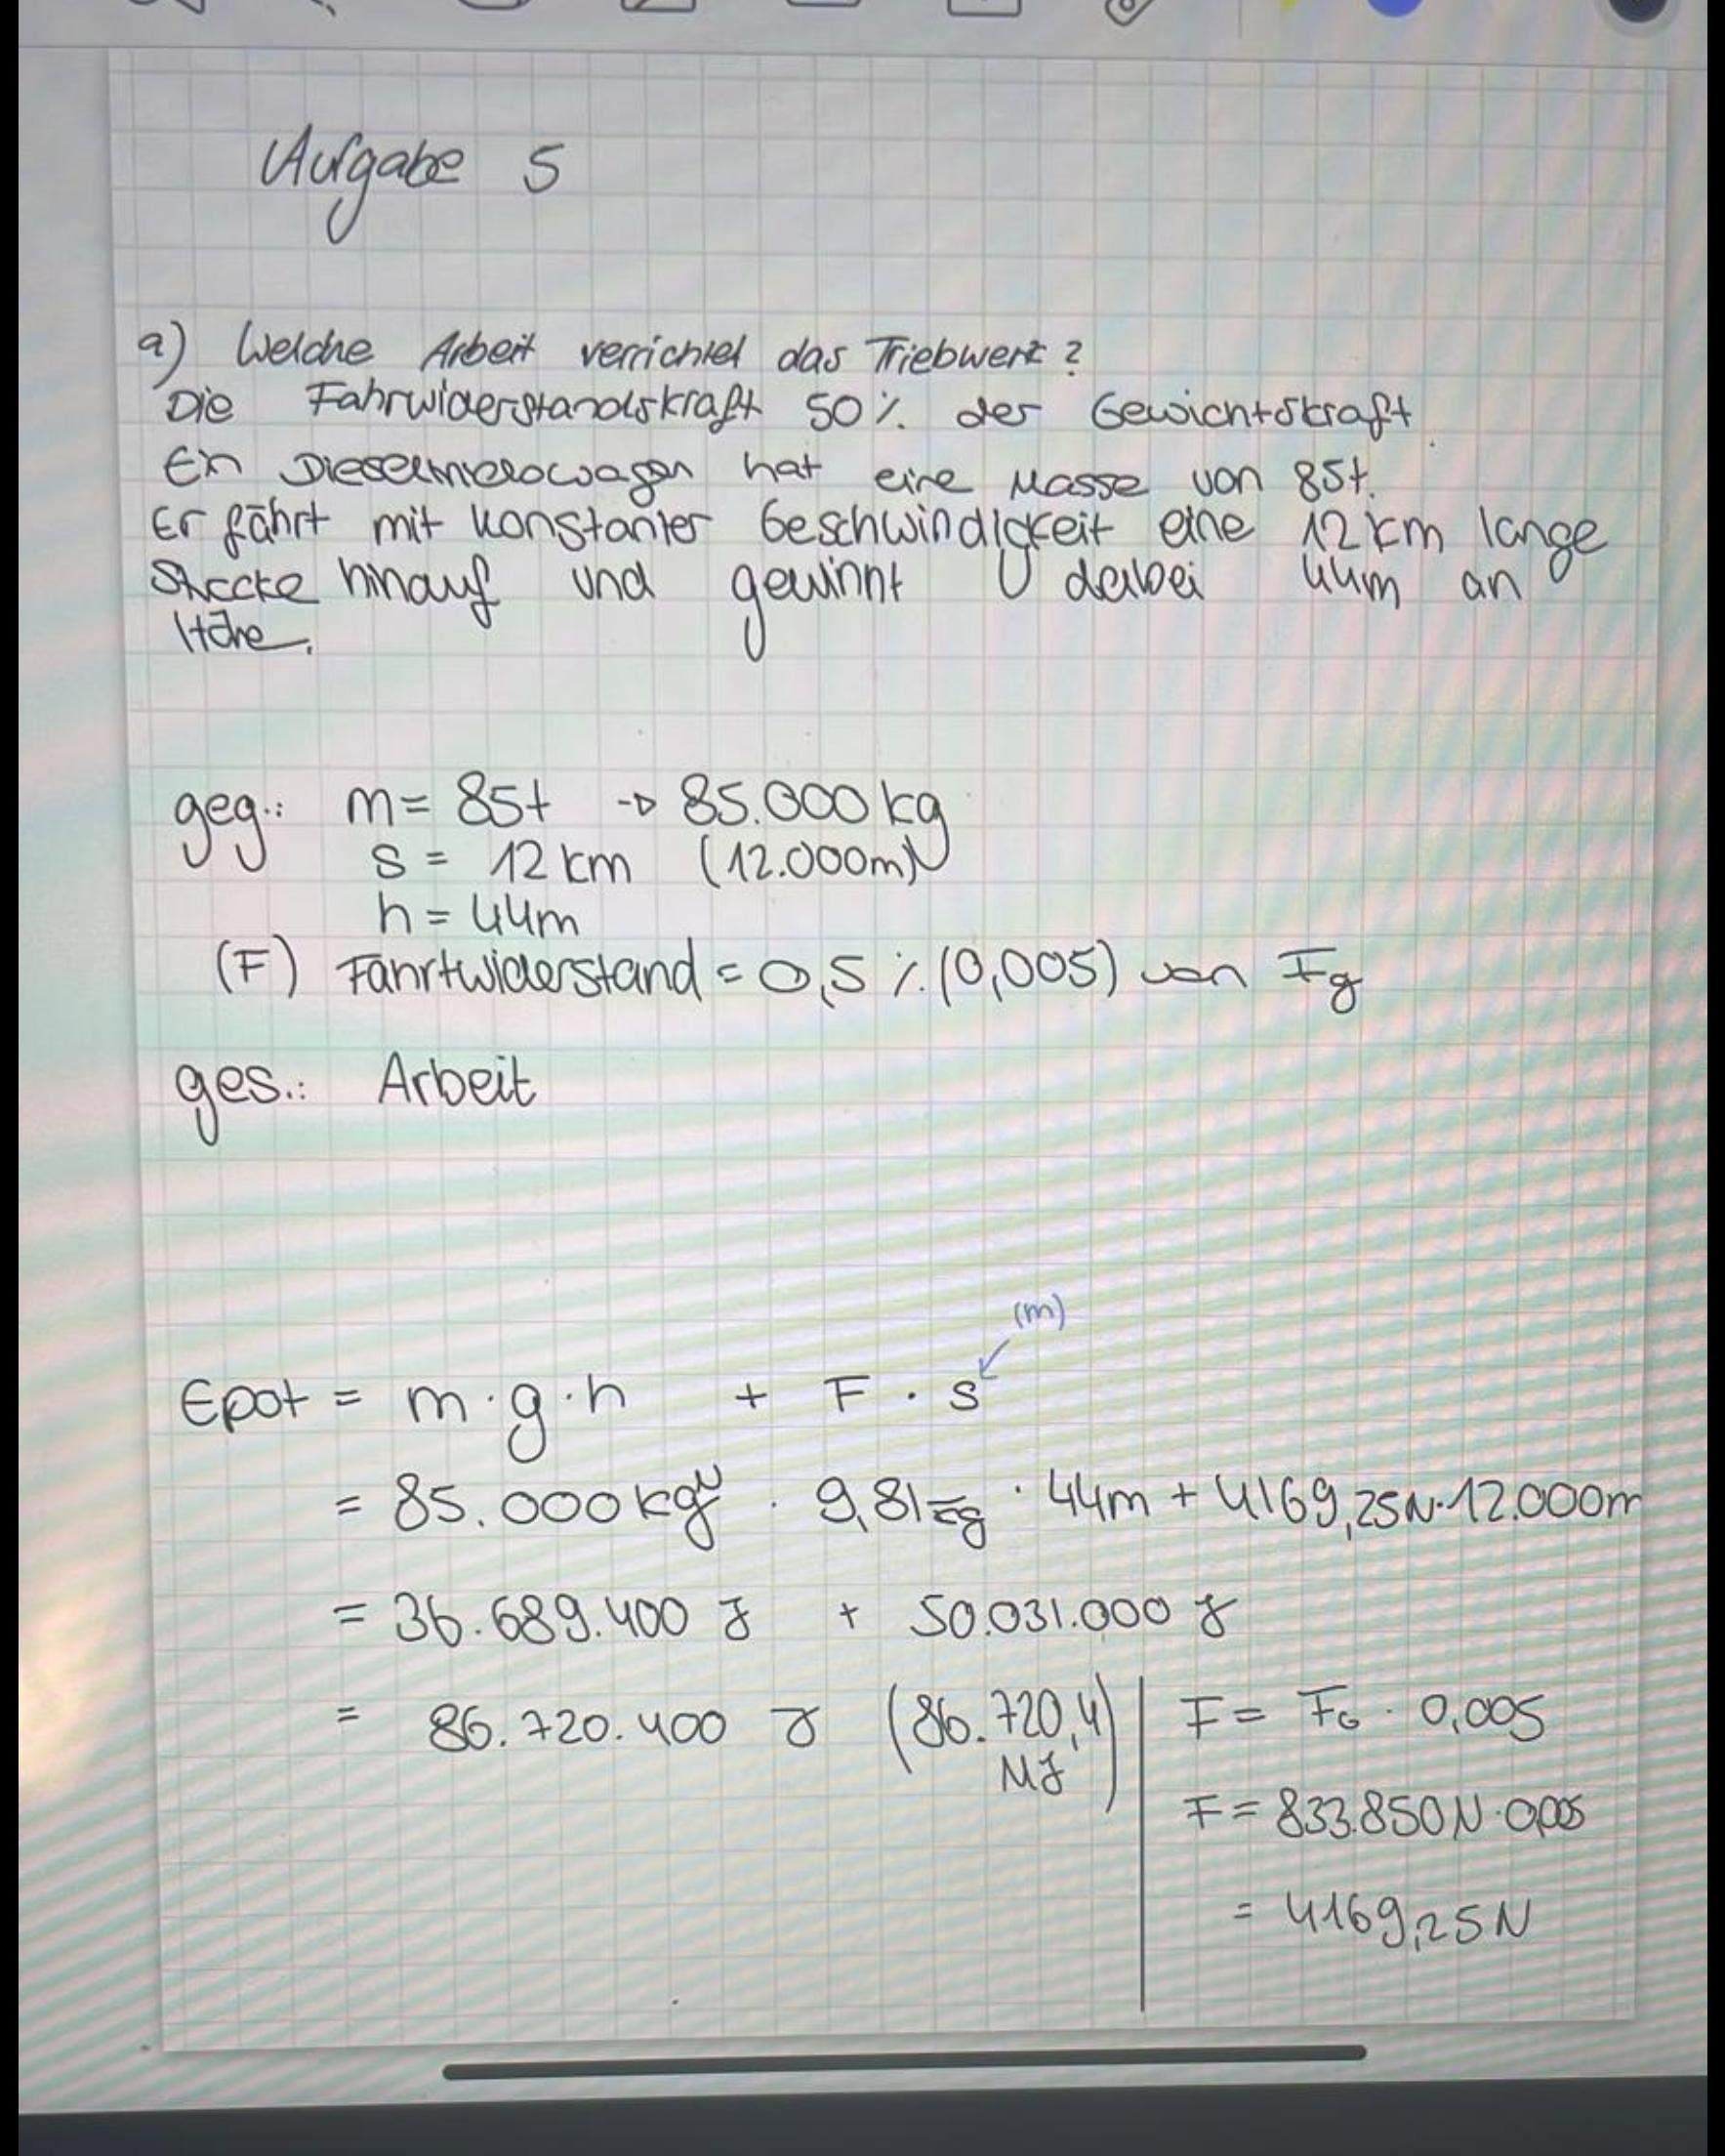 Aufgabe 5
a) Welche Arbeit verrichtet das Triebwerk?
Die Fahrwiderstandskraft 50% der Gewichtskraft.
Ein hat eine Masse von 85t.
Er fährt mit konstanter Geschwindigkeit eine 12 km lange
Strecke hinauf und gewinnt dabei 44m an
Höhe.
geg.: m = 85t → 85.000 kg
s = 12 km (12.000m)
h = 44m
(F) Fahrtwiderstand = 0,5 % (0,005) von Fg
ges.: Arbeit
(m)
Epot = m · g · h + F · s
= 85.000 kg · 9,81 N/kg · 44m + 4169,25N · 12.000m
= 36.689.400 J + 50.031.000 J
= 86.720.400 J (86.720,4 MJ)
F = FG · 0,005
F = 833.850N · 0,005
= 4169,25N